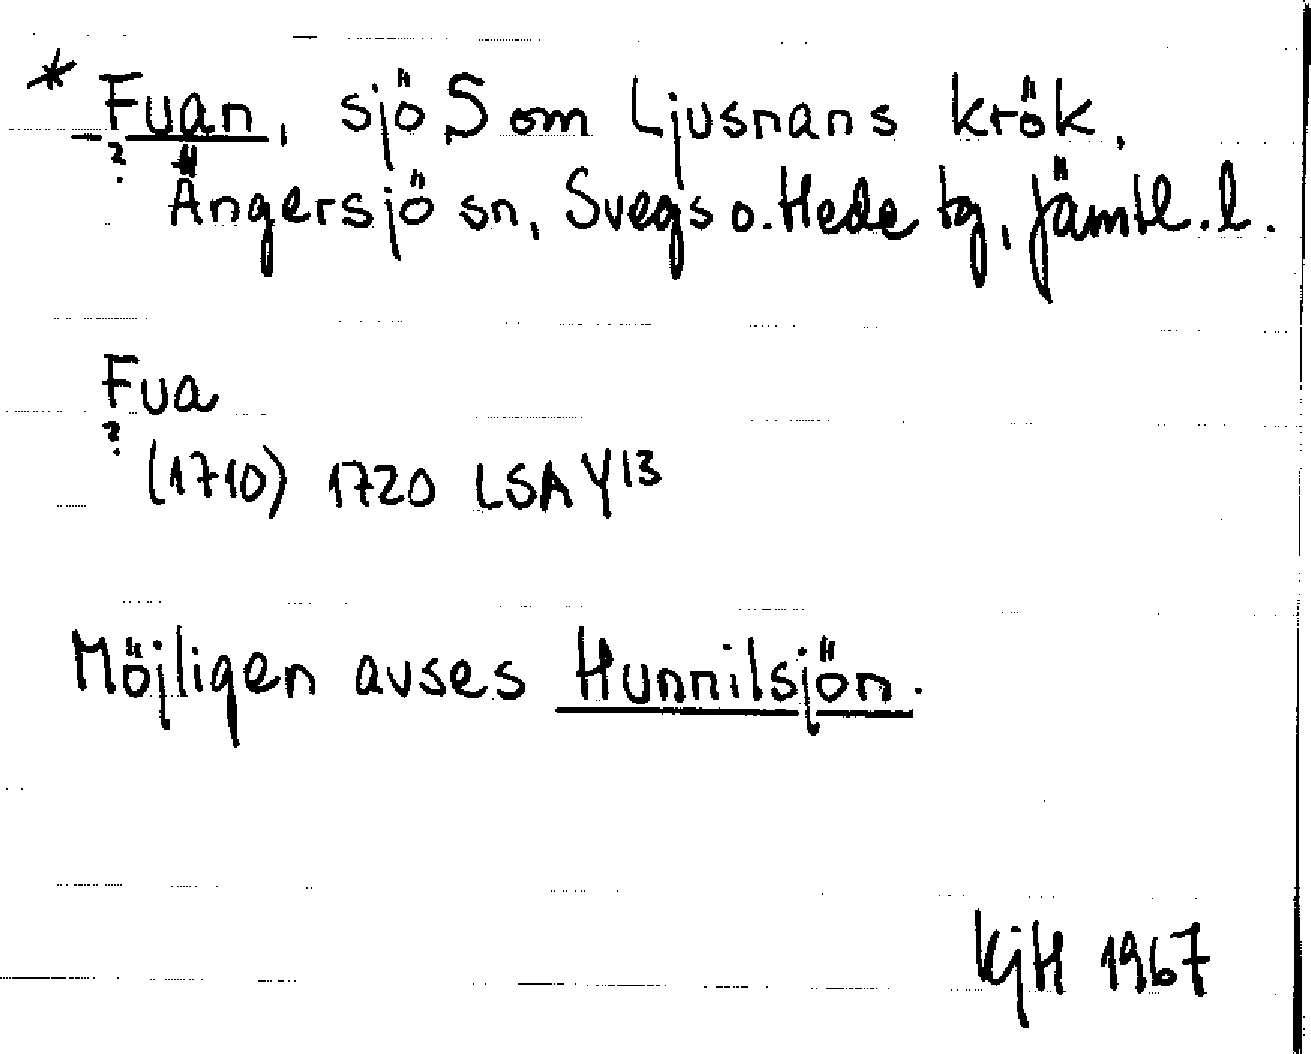 * Fuan, sjö S om Ljusnans krök,
? Ängersjö sn, Svegs o. Hede tg, Jämtl. l.
Fua
?
(1710) 1720 LSA Y13
Möjligen avses Hunnilsjön.
KjH 1967